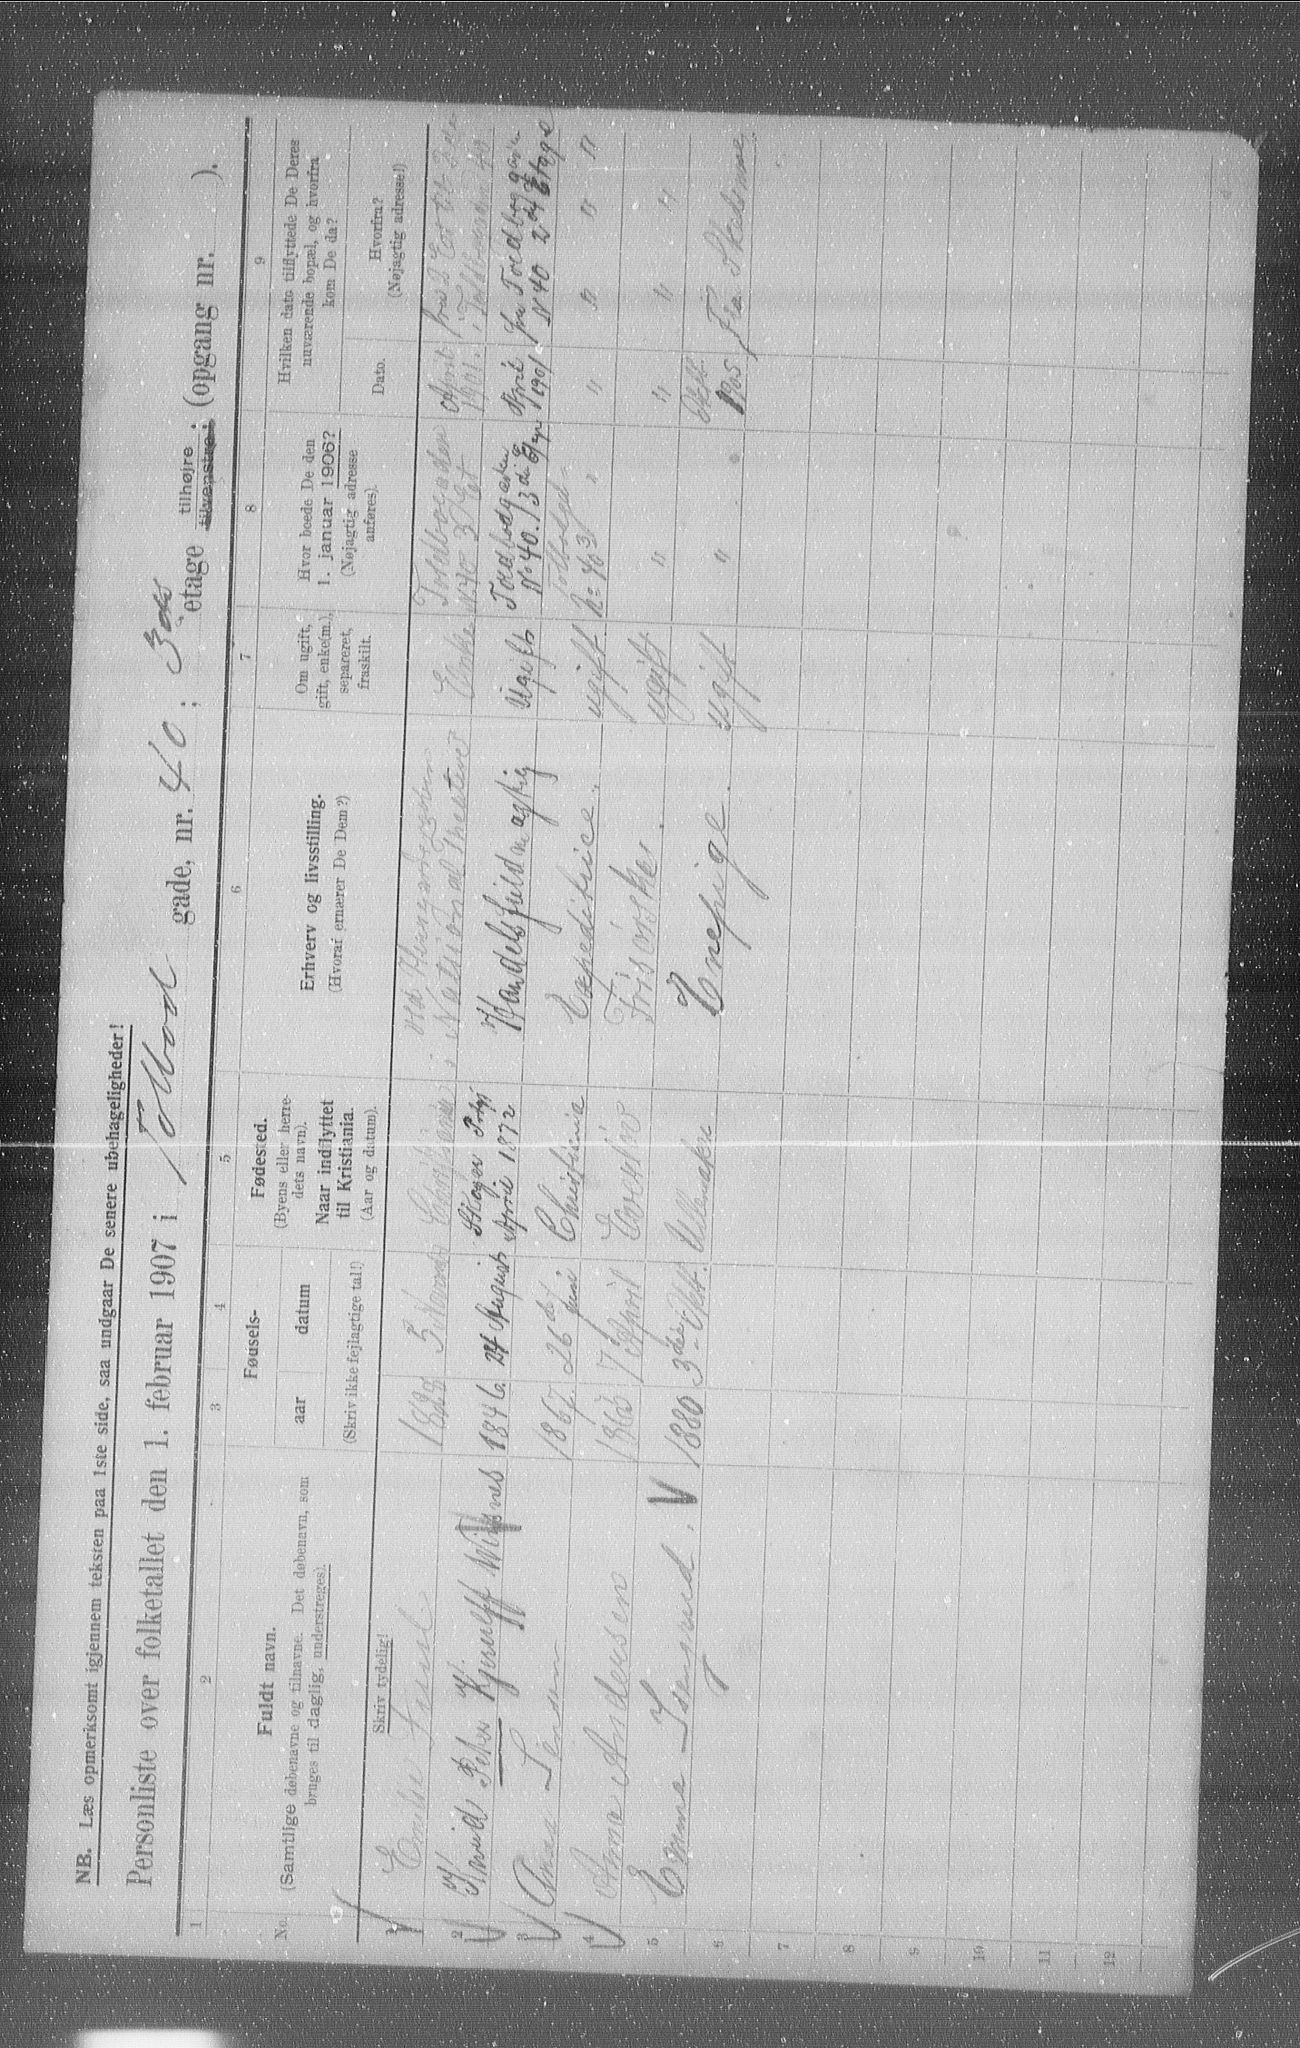 NB. Læs opmerksomt igjennem teksten paa 1ste side, saa undgaar De senere ubehageligheder!
Personliste over folketallet den 1. februar 1907 i Tollbod gade, nr. 40; 3die etage tilhøjre tilvenstre; (opgang nr. ).
1 2 3 4 5 6 7 8 9
No.
Fuldt navn.
(Samtlige døbenavne og tilnavne. Det døbenavn, som
bruges til daglig, understreges).
Skriv tydelig!
Fødsels-
aar datum
(Skriv ikke fejlagtige tal!)
Fødested.
(Byens eller herre-
dets navn).
Naar indflyttet
til Kristiania.
(Aar og datum).
Erhverv og livsstilling.
(Hvoraf ernærer De Dem?)
Om ugift,
gift, enke(m.),
separeret,
fraskilt.
Hvor boede De den
1. januar 1906?
(Nøjagtig adresse
anføres).
Hvilken dato tilflyttede De Deres
nuværende bopæl, og hvorfra
kom De da?
Dato.
Hvorfra?
(Nøjagtig adresse!)
1 Emilie Enke Toldbogaden No 40 3 Et April 1901.
2 Peter Kjerulff 1846 24 August April 1872 Handelsfuldmægtig Ugift Toldbodgaden No 40. 3die Etage April 1901 fra Toldbodgaden N 40 2den Etage
3 Anna 1867 26de juni Christiania Expeditrice. ugift No 40 3 " " " " "
4 Anna Andersen 7 April ugift " " " "
5 Emma 1880 3die Ullensaker Enepige. ugift " " 1905 Fra
6
7
8
9
10
11
12